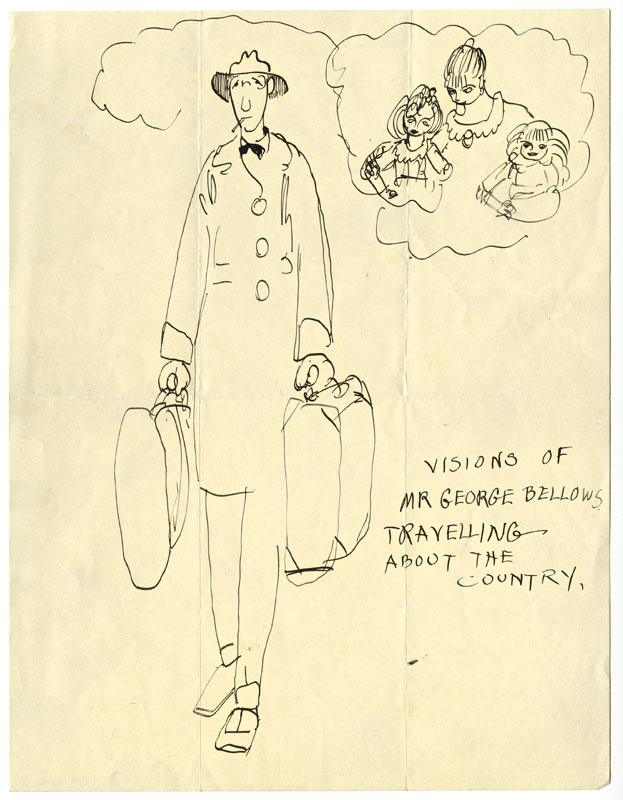 VISIONS OF
MR GEORGE BELLOWS
TRAVELLING
ABOUT THE
COUNTRY.